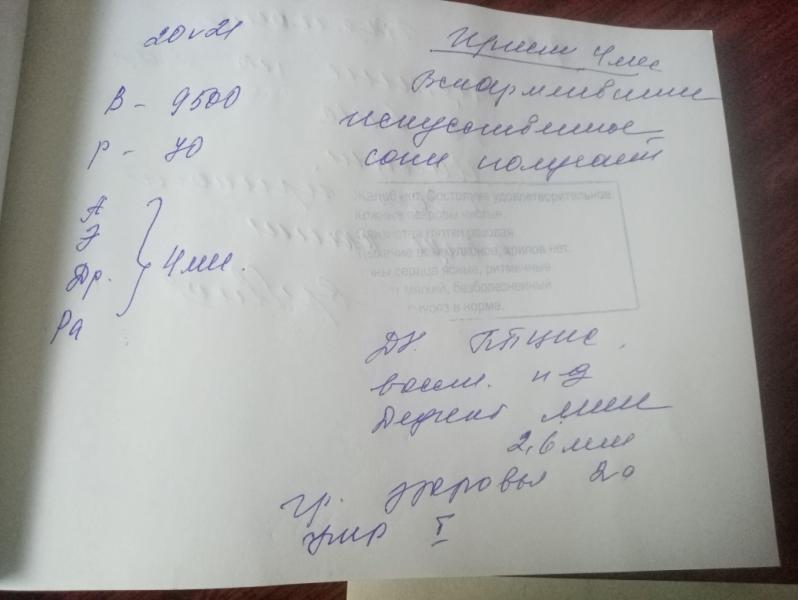 20 v 21
В - 9500
Р - 70
А
Э
Др.
Ра
4 мес.
Прием 4 мес
Вскармливание
искусственное
соки получает
Жалоб нет. Состояние удовлетворительное.
Кожные покровы чистые.
розовая.
хрипов нет.
сердца ясные, ритмичные
мягкий, безболезненный
в норме.
Дз.
Дефект
2,6 мм
гр. здоровья 2а
I